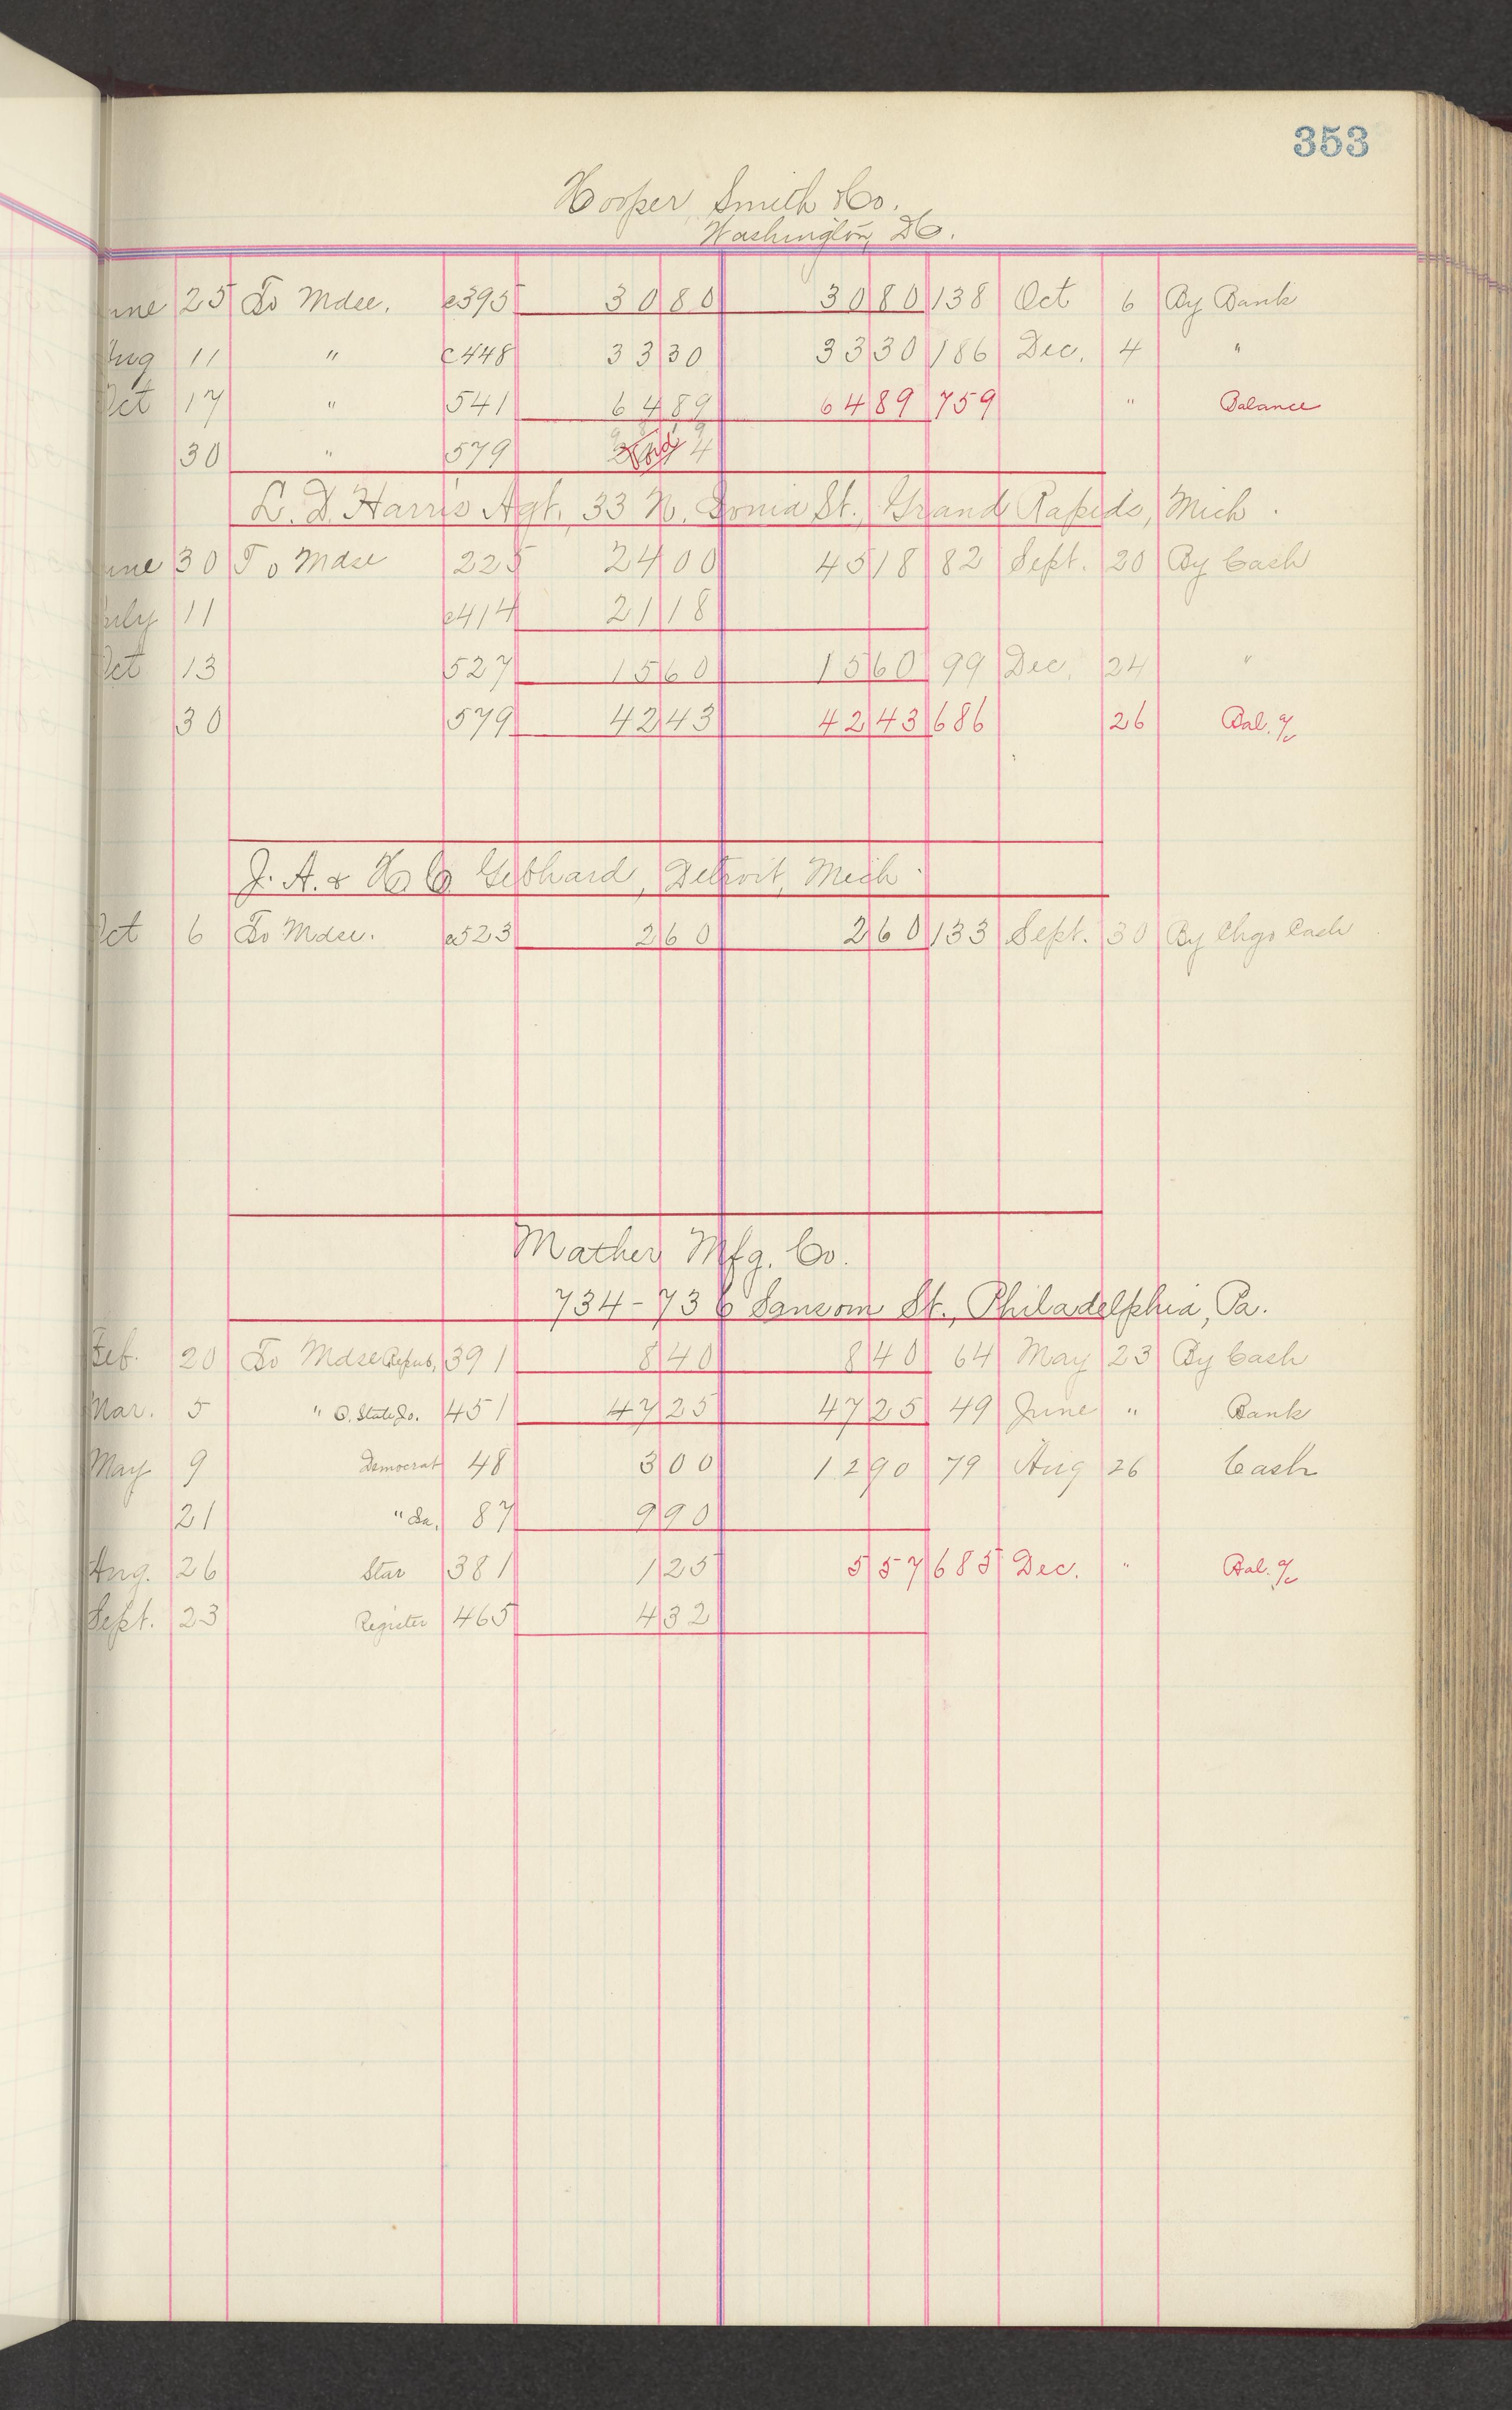 353
Hooper Smith & Co.
Washington, D.C.
une 25 To Mdse. c395 30 80 30 80 138 Oct 6 By Bank
Aug 11 " c448 33 30 33 30 186 Dec. 4 "
Oct 17 " 541 64 89 64 89 759 " Balance
30 " 579
L. D. Harris Agt. 33 N. Ionia St., Grand Rapids, Mich.
une 30 To Mdse 225 24 00 45 18 82 Sept. 20 By Cash
uly 11 c414 21 18
Oct 13 527 15 60 15 60 99 Dec. 24 "
30 579 42 43 42 43 686 26 Bal. a/c
J. A. & H C Gebhard, Detroit, Mich.
Oct 6 To Mdse. c523 2 60 2 60 133 Sept. 30 By Chgo Cash
Mather Mfg. Co.
734-736 Sansom St., Philadelphia, Pa.
Feb. 20 To Mdse Repub. 391 8 40 8 40 64 May 23 By Cash
Mar. 5 " O. State Jo. 451 47 25 47 25 49 June " Bank
May 9 Democrat 48 3 00 12 90 79 Aug 26 Cash
21 " 87 9 90
Aug. 26 Star 381 1 25 5 57 685 Dec. " Bal. a/c
Sept. 23 Register 465 4 32